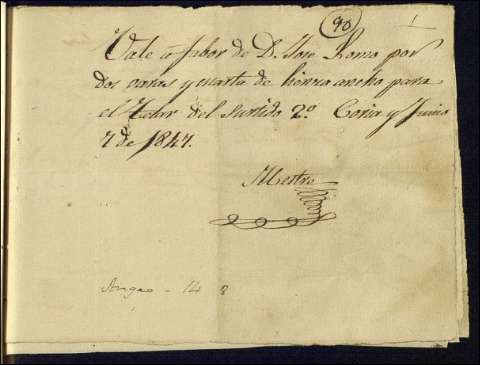 90
Vale a fabor de D. Jose Romo por
dos varas y cuarta de lienzo ancho para
el Telar del surtido 2º. Coria y Junio
7 de 1847.
Mestre
Angeo - 14 8